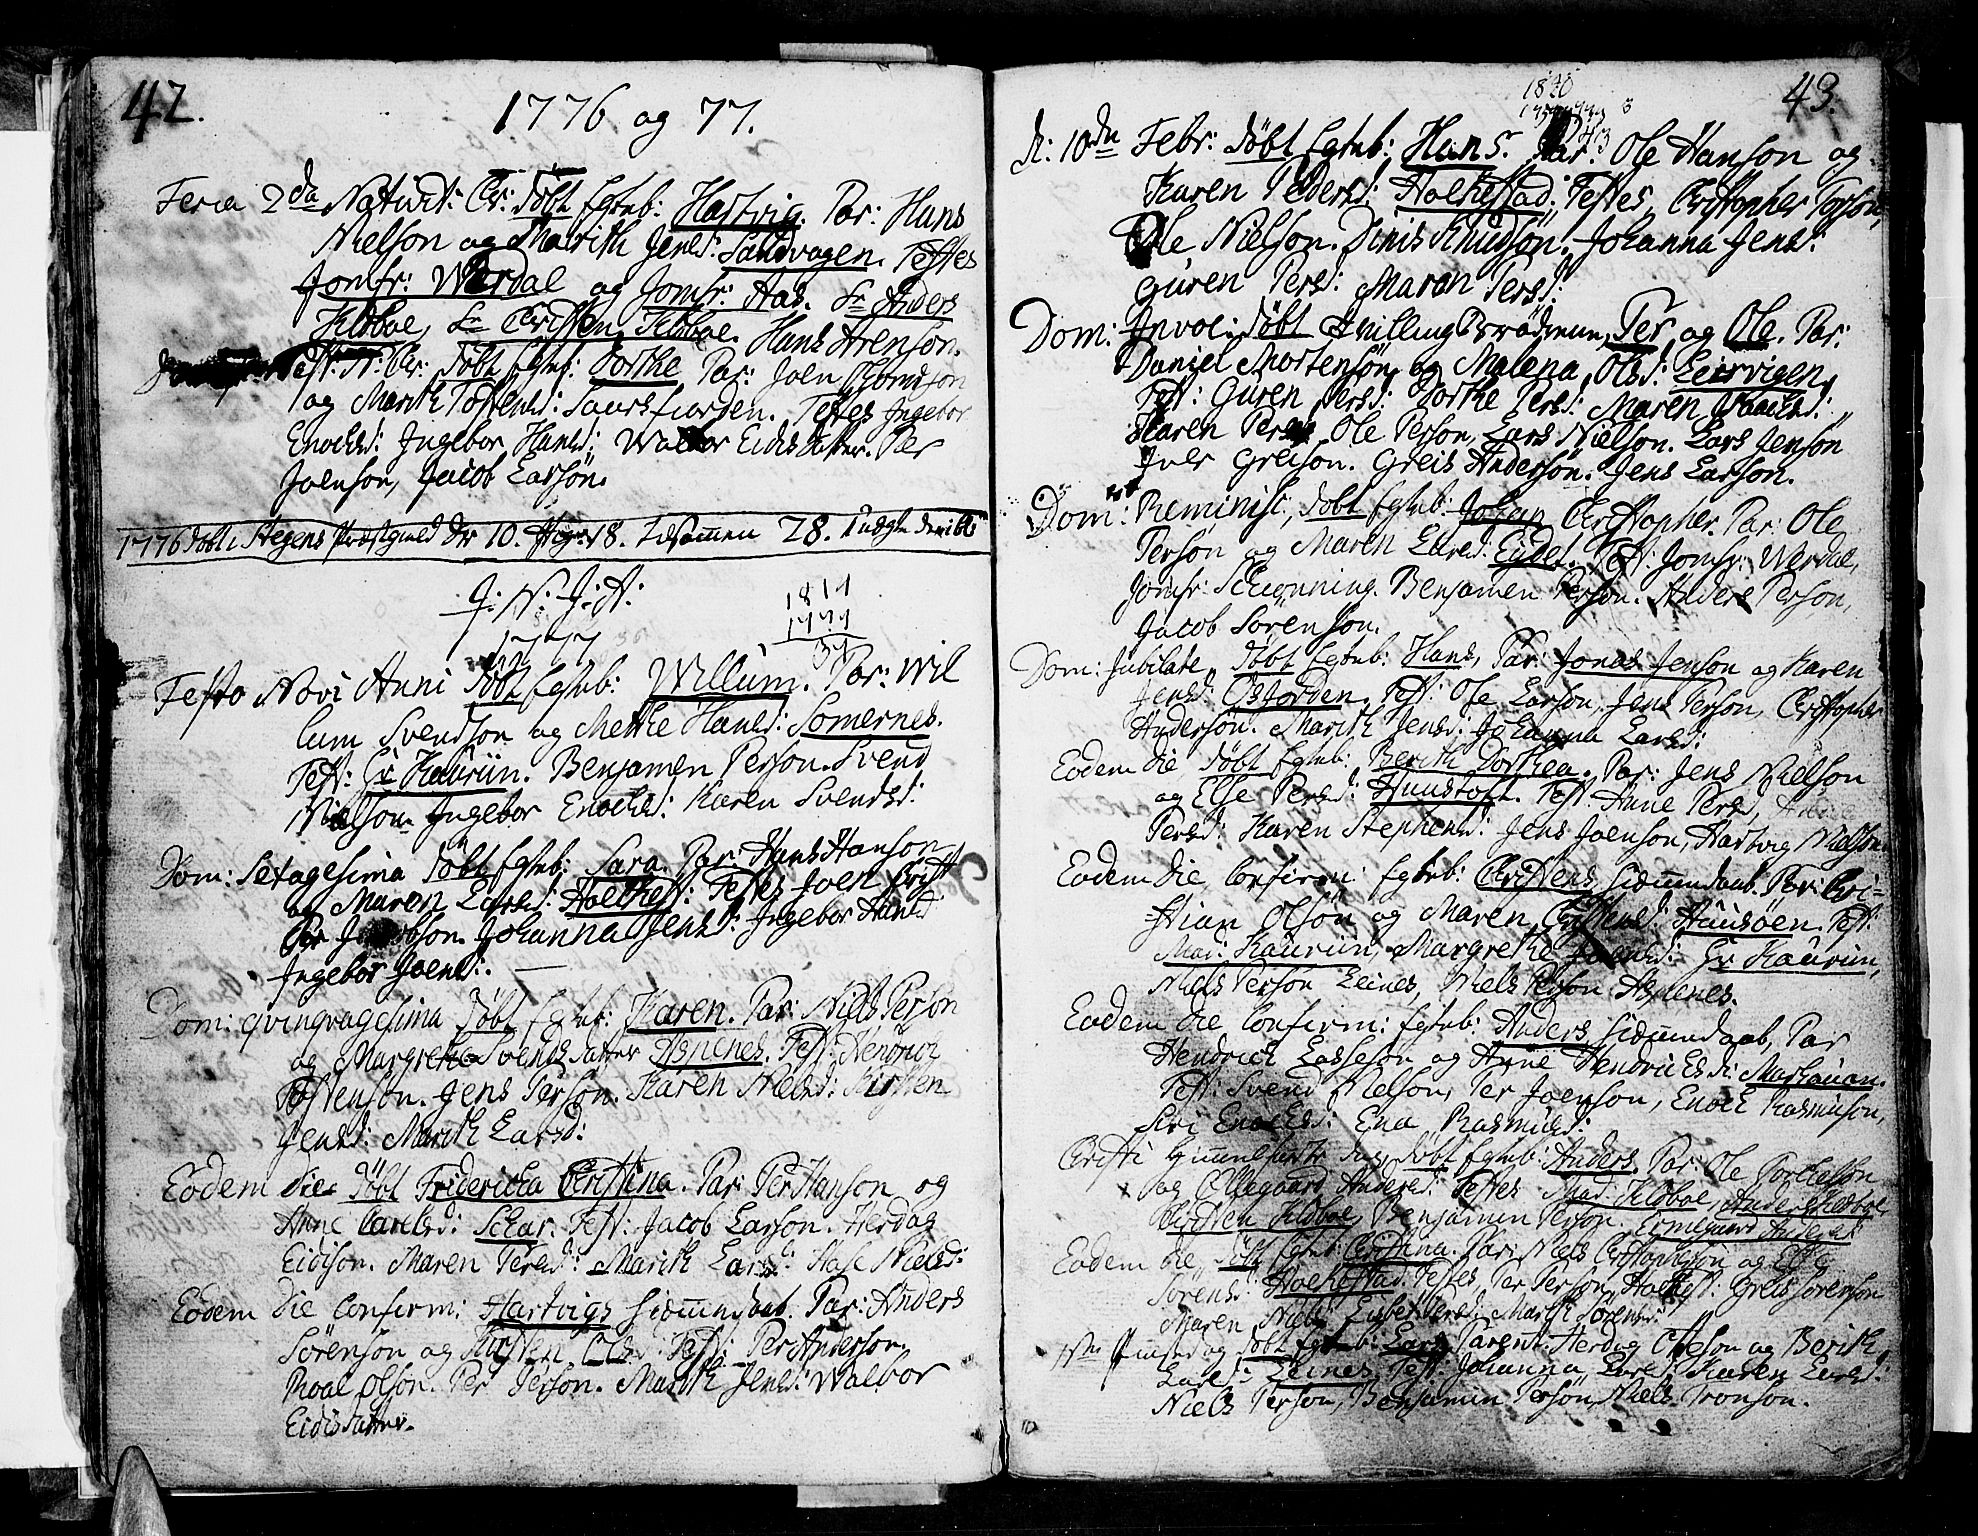 42.
1776 og 77.
Feria 2da Nativit: Cr: døbt Egtub: Hartvig. Par: Hans
Nielson og Marith Jensd: Sandvagen. Testes
Jomfr: Werdal og Jomfr: Aas. Sr Anders
Kldboe, Sr Cristen Kldboe. Hans Arenson.
Fest: N: Cr: døbt Egtub: Dorthe Par: Joen
og Marith Tostensd: Saursfiorden. Testes Ingebor
Enochsd: Ingebor Hansd: Walbor Eidisdatter. Per
Joenson, Jacob Larsøn.
1776 døbt i Stegens Præstegield 10. 18. tilsammen 28.
J: N: J: A:
1777
1814
1777
37
Festo Novi Anni døbt Egtub: Willum. Par: Wil
lum Svendson og Mette Hansd: Somernes.
Test: Sr Kaurin. Benjamen Person. Svend
Nielson. Ingebor Enochsd: Karen Svendsd:
Dom: Sexagesima døbt Egtub: Sara. Par: Hans Hanson
og Maren Larsd: Holkest: Testes Joen
Per Jacobson. Johanna Jensd: Ingebor Hansd
Ingebor Joensd:
Dom: qvinqvagesima døbt Egtub: Karen. Par: Niels Person
og Margrethe Svendsdatter Aspenes. Test: Hendrich
Tostenson. Jens Person. Karen Nielsd: Kirsten
Jensd: Marith Larsd:
Eodem die døbt Fridericka Cristina. Par: Per Hanson og
Anne Carelsd: Skar. Test: Jacob Larson. Herdag
Eidison. Maren Persd: Marith Larsd: Aase Nielsd:
Eodem die Confirm: Hartvigs hiemmedaab. Par: Anders
Sørenson og Kirsten Olsd: Test: Per Anderson.
Roal Olson. Per Person. Marith Jensd: Walbor
Eidisdatter.
43.
1820
d: 10de Febr: døbt Egtub: Hans. Par: Ole Hanson og
Karen Pedersd: Holkestad. Testes, Cristopher Person,
Ole Nielson. Dinis Knudson. Johanna Jensd:
Guren Persd: Maren Persd:
Dom: Invoc: døbt Tvilling Brødrene, Per og Ole. Par:
Daniel Mortensøn og Malena Olsd: Leirvigen,
Test: Guren Persd: Dorthe Persd: Maren
Karen Persd Ole Person, Lars Nielson. Lars Jenson
Iver Greison. Greis Andersøn. Jens Larson.
Dom: Reminisc, døbt Egtub: Johan Cristopher. Par: Ole
Persøn og Maren Larsd: Eydet. Test: Jomfr: Werdal,
Jomfr: Schiønning. Benjamen Person. Anders Person,
Jacob Sørenson.
Dom: Jubilate, døbt Egtub: Hans, Par: Jonas Jenson og Karen
Jensd: Osforden. Test: Ole Larson, Jens Person, Cristopher
Anderson. Marith Jensd: Johanna Larsd:
Eodem die, døbt Egtub: Berith Dorthea. Par: Jens Nielson
og Else Persd: Huustoft. Test: Anne Persd,
Persd: Karen Stephensd: Jens Joenson, Hartvig Nielson.
Eodem die, Confirm: Egtub: Cristens hiemmedaab. Par: Cri=
=stian Olsøn og Maren Huusøen. Test:
Mar: Kaurin, Margrethe Sr Kaurin,
Niels Person Leines, Niels Person Aspenes.
Eodem die Confirm: Egtub: Anders hiemmedaab, Par
Hendrich Lasseson og Ane Hendrichsd: Markauen.
Test: Svend Nielson, Per Joenson, Enoch Rasmuson,
Siri Enochsd: Ena Rasmusd:
Cristi Himmelfarts dag døbt Egtub: Anders. Par: Ole
og Ollegaard Andersd: Testes Mad. Kldboe, Anders Kldboe
Cristen Kldboe, Benjamin Person, Ermegaard Andersd
Eodem die, døbt Egtub: Cristina. Par: Niels Cristopherson og Else
Sørensd: Holkestad. Testes, Per Person, Holkest: Greis Sørenson
Maren Lisbet Persd: Marith Sørensd:
døbt Egtub: Lars Parent: Herdag og Berith
Larsd: Leines, Test: Johanna Larsd: Karen Larsd:
Niels Person, Benjamin Persøn, Niels Tronson.